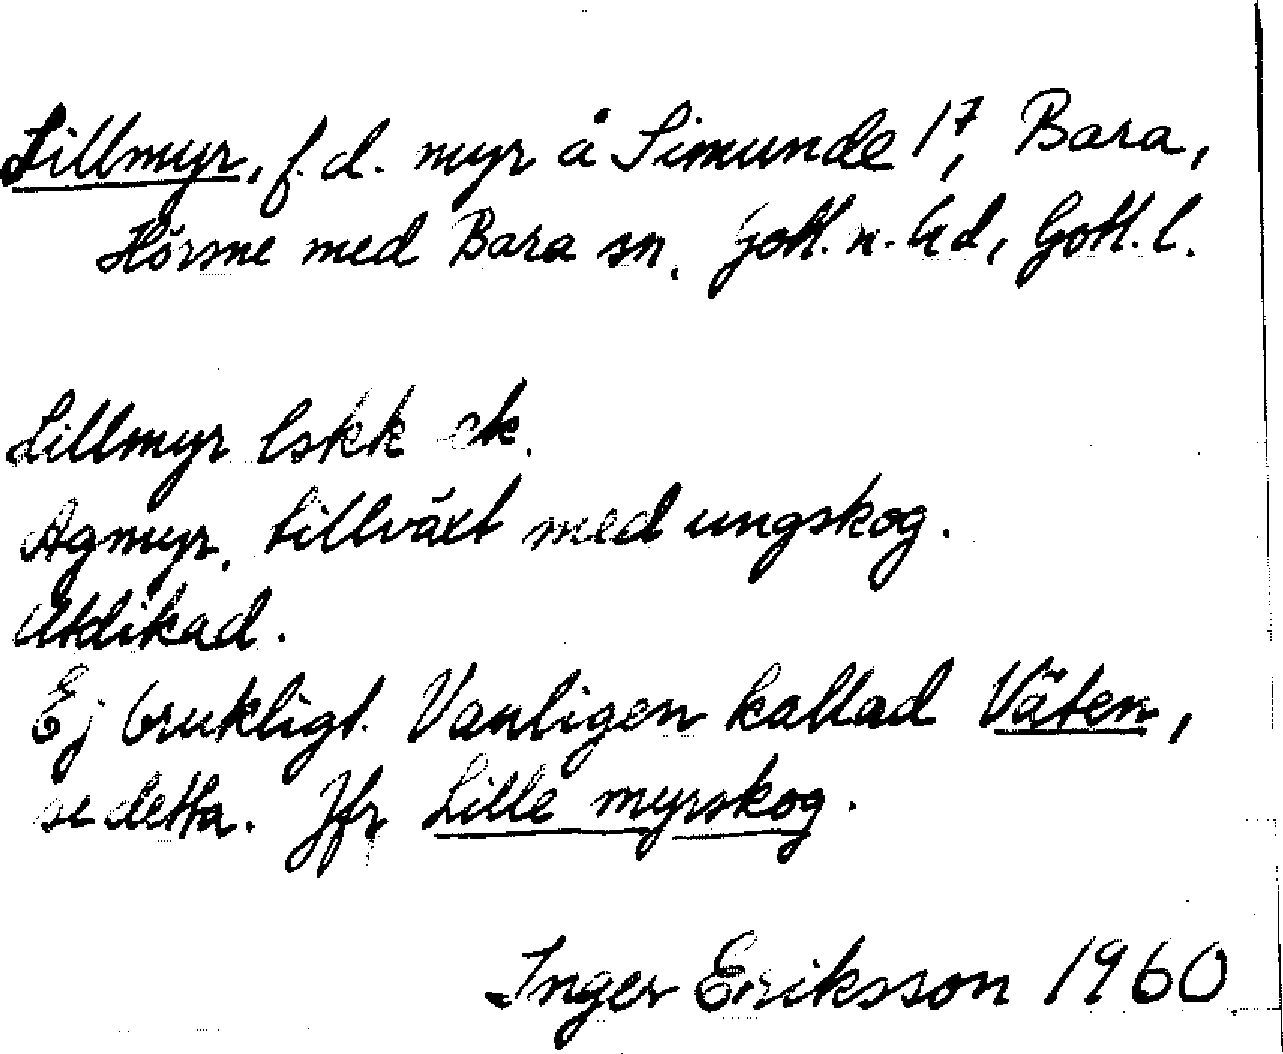 Lillmyr, f.d. myr å Simunde 1⁷, Bara,
Hörsne med Bara sn. Gotl. n. hd, Gotl. l.
Lillmyr lskk ek.
Agmyr, tillväxt med ungskog.
Utdikad.
Ej brukligt. Vanligen kallad Väten,
se detta. Jfr Lille myrskog.
Inger Eriksson 1960